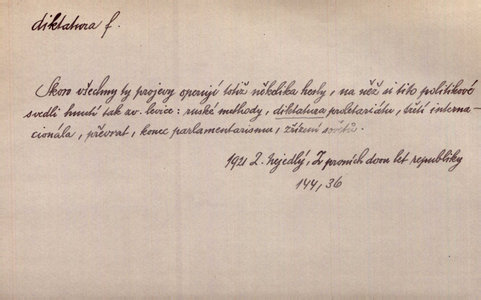 diktatura f.
Skoro všechny ty projevy operují totiž několika hesly, na něž si tito politikové
svedli hnutí tak zv. levice: ruské methody, diktatura proletariátu, třetí interna-
cionála, převrat, konec parlamentarismu, zřízení sovětů.
1921 Z. Nejedlý, Z prvních dvou let republiky
144, 36